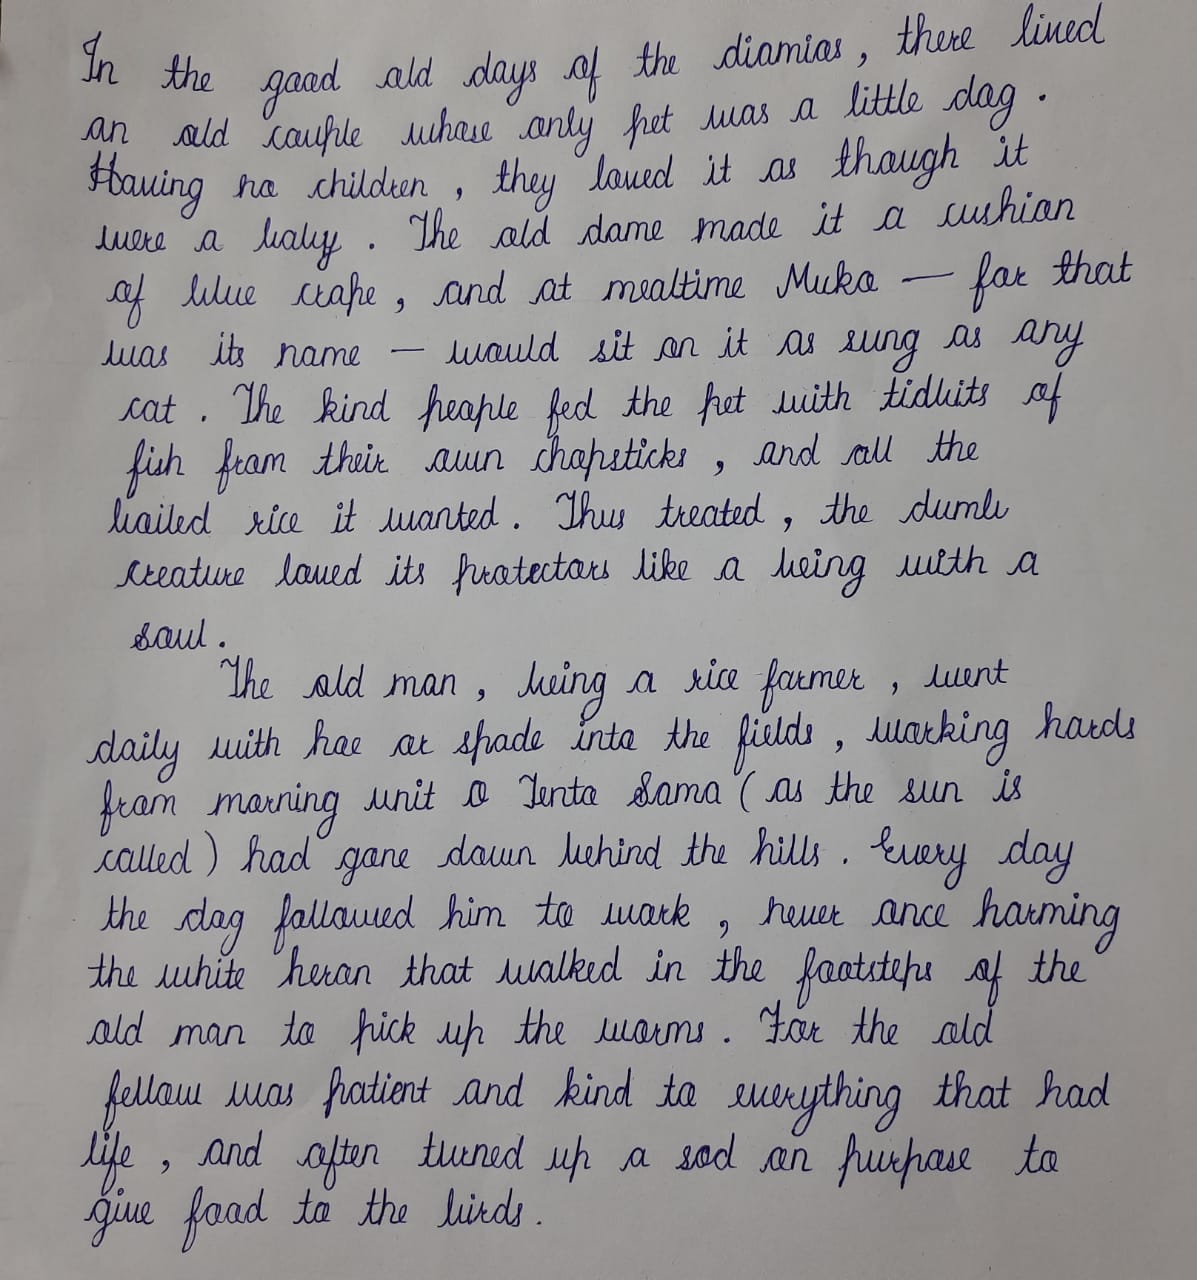 In the good old days of the diamias, there lined
an old couple whose only pet was a little dog.
Having no children, they loved it as though it
were a baby. The old dame made it a cushion
of blue crape, and at mealtime Muko — for that
was its name — would sit on it as sung as any
cat. The kind people fed the pet with tidbits of
fish from their own chopsticks, and all the
boiled rice it wanted. Thus treated, the dumb
creature loved its protectors like a being with a
soul.
The old man, being a rice farmer, went
daily with hoe or spade into the fields, working hards
from morning unit O Tento Sama (as the sun is
called) had gone down behind the hills. Every day
the dog followed him to work, never once harming
the white heron that walked in the footsteps of the
old man to pick up the worms. For the old
fellow was patient and kind to everything that had
life, and often turned up a sod on purpose to
give food to the birds.